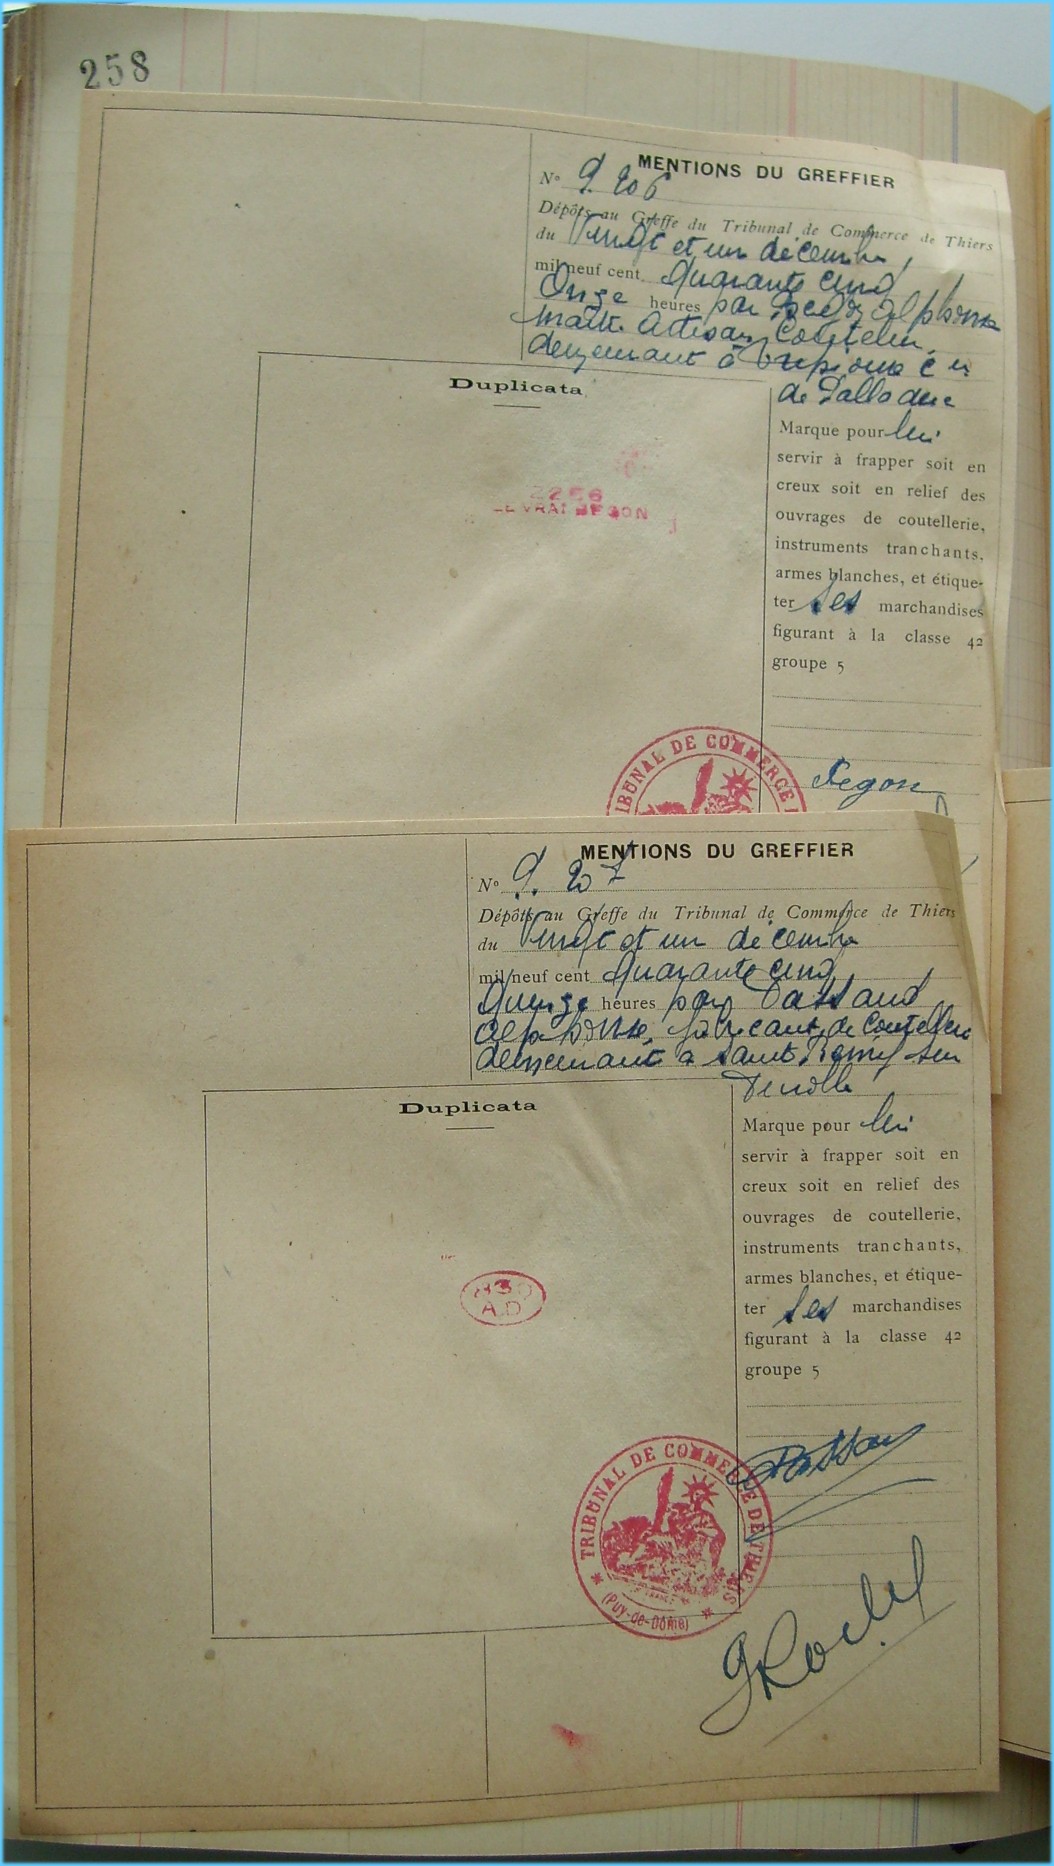 258
MENTIONS DU GREFFIER
N° 9.206
Dépôts au Greffe du Tribunal de Commerce de Thiers
du Vingt et un décembre
mil neuf cent quarante cinq
Onze heures par Begon Alphonse
maître Artisan Coutelier,
demeurant à
de Palladuc
Duplicata
LE VRAI BEGON
Marque pour lui
servir à frapper soit en
creux soit en relief des
ouvrages de coutellerie,
instruments tranchants,
armes blanches, et étique-
ter ses marchandises
figurant à la classe 42
groupe 5
TRIBUNAL DE COMMERCE
Begon
MENTIONS DU GREFFIER
N° 9.207
Dépôts au Greffe du Tribunal de Commerce de Thiers
du Vingt et un décembre
mil neuf cent quarante cinq
Quinze heures par Dassaud
Alphonse, fabricant de Coutellerie
demeurant à Saint Remy sur
Durolle
Duplicata
A.D
Marque pour lui
servir à frapper soit en
creux soit en relief des
ouvrages de coutellerie,
instruments tranchants,
armes blanches, et étique-
ter ses marchandises
figurant à la classe 42
groupe 5
TRIBUNAL DE COMMERCE DE THIERS
(Puy-de-Dôme)